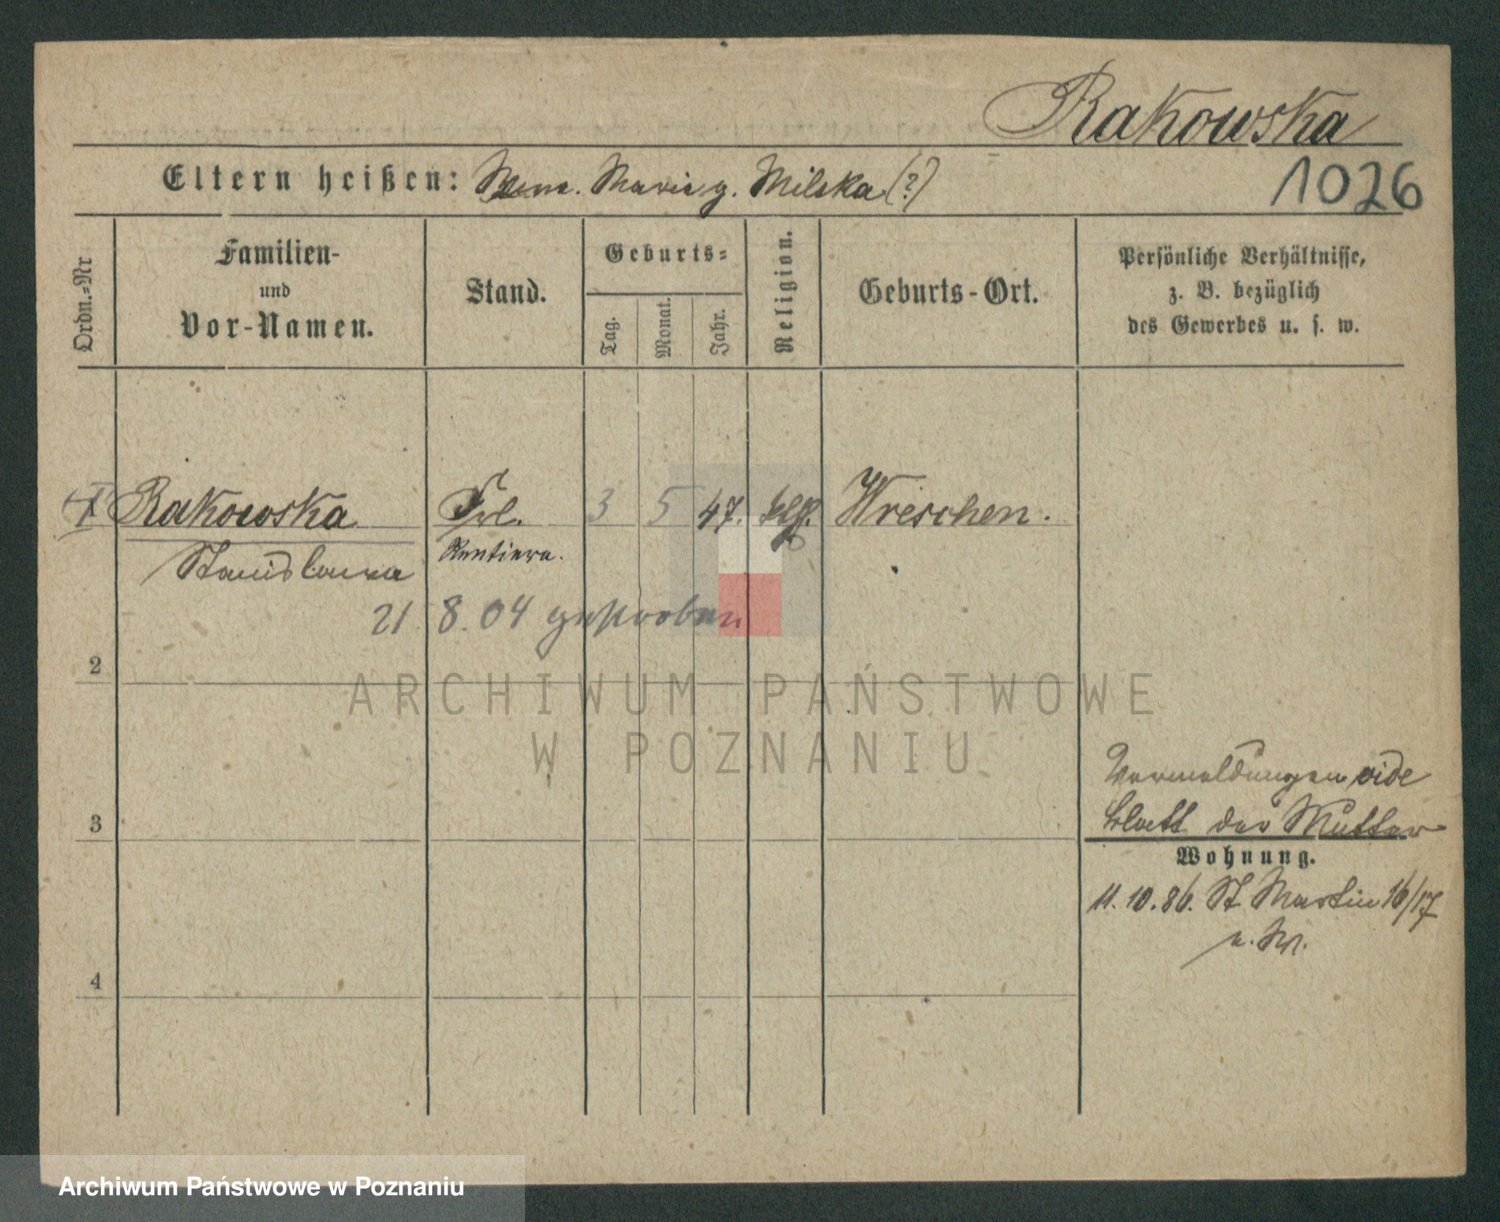 Rakowska
1026
Eltern heißen: Maria g. Milska (?)
Ordn.-Nr
Familien-
und
Vor-Namen.
Stand.
Geburts-
Tag.
Monat.
Jahr.
Religion.
Geburts-Ort.
Persönliche Verhältnisse,
z. B. bezüglich
des Gewerbes u. s. w.
Rakowska Frl. 3 5 47. Wreschen.
Stanislawa Rentiere.
21 8.04 gestorben
2
ARCHIWUM PAŃSTWOWE
W POZNANIU
Vermeldungen vide
3 Blatt der Mutter
Wohnung.
11.10.86. St Martin 16/17
4
Archiwum Państwowe w Poznaniu